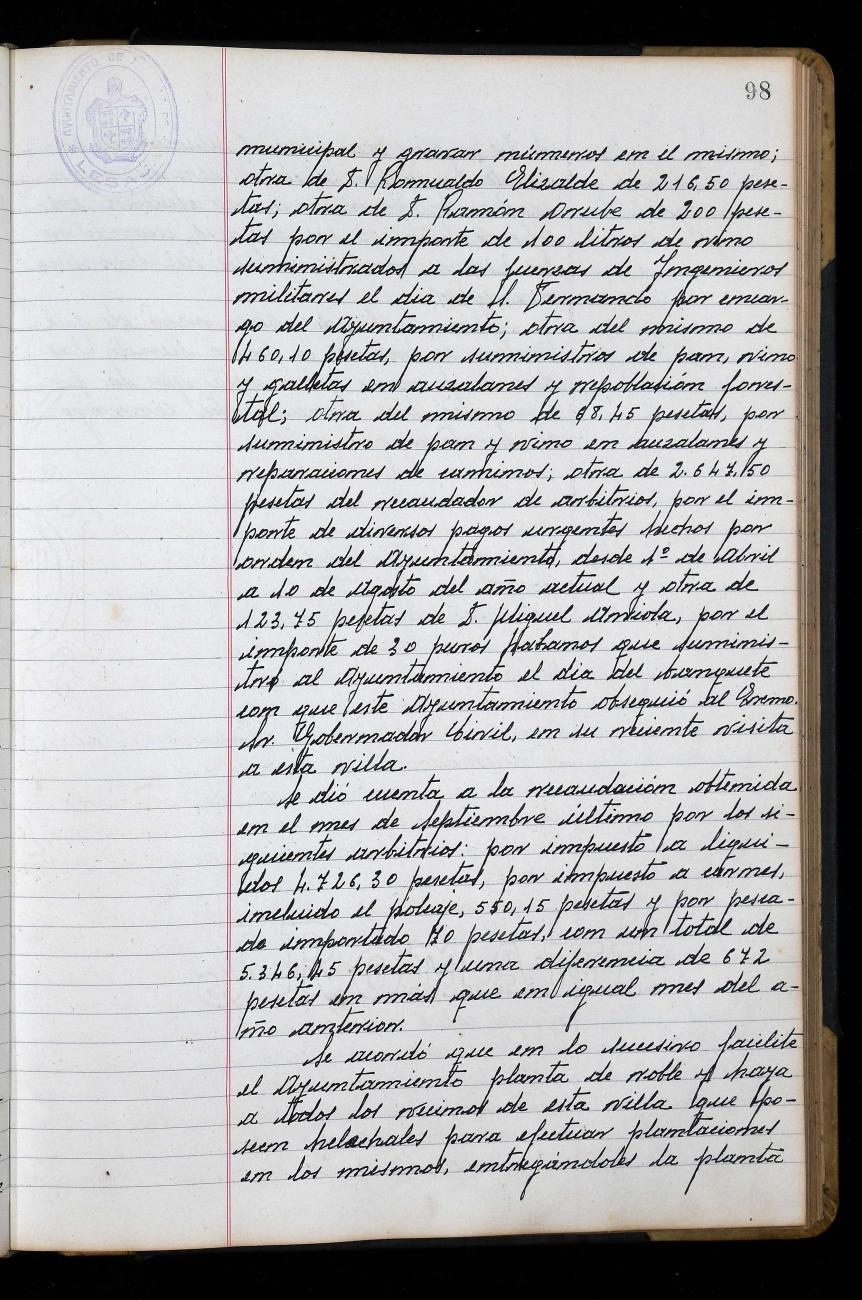 98
AYUNTAMIENTO DE
LESACA
municipal y gravar números en el mismo;
otra de D. Romualdo Elizalde de 216,50 pese-
tas; otra de D. Ramón Orube de 200 pese-
tas por el importe de 100 litros de vino
suministrados a las fuerzas de Ingenieros
militares el dia de S. Fernando por encar-
go del Ayuntamiento; otra del mismo de
460,10 pesetas, por suministros de pan, vino
y galletas en auzalanes y repoblasión fores-
tal; otra del mismo de 68,45 pesetas, por
suministro de pan y vino en auzalanes y
reparaciones de caminos; otra de 2.647,50
pesetas del recaudador de arbitrios, por el im-
porte de diversos pagos urgentes hechos por
orden del Ayuntamiento, desde 1º de Abril
a 10 de Agosto del año actual y otra de
123,75 pesetas de D. Miguel Arriola, por el
importe de 30 puros habanos que suminis-
tro al Ayuntamiento el dia del banquete
con que este Ayuntamiento obsequió al Excmo.
Sr. Gobernador Civil, en su reciente visita
a esta villa.
Se dió cuenta a la recaudación obtenida
en el mes de Septiembre último por los si-
guientes arbitrios: por impuesto a liqui-
dos 4.726,30 pesetas, por impuesto a carnes,
incluido el poleaje, 550,15 pesetas y por pesca-
do importado 70 pesetas, con un total de
5.346,45 pesetas y una diferencia de 672
pesetas en más que en igual mes del a-
ño anterior.
Se acordó que en lo sucesivo facilite
el Ayuntamiento planta de roble y haya
a todos los vecinos de esta villa que po-
seen helechales para efectuar plantaciones
en los mismos, entregándoles la planta